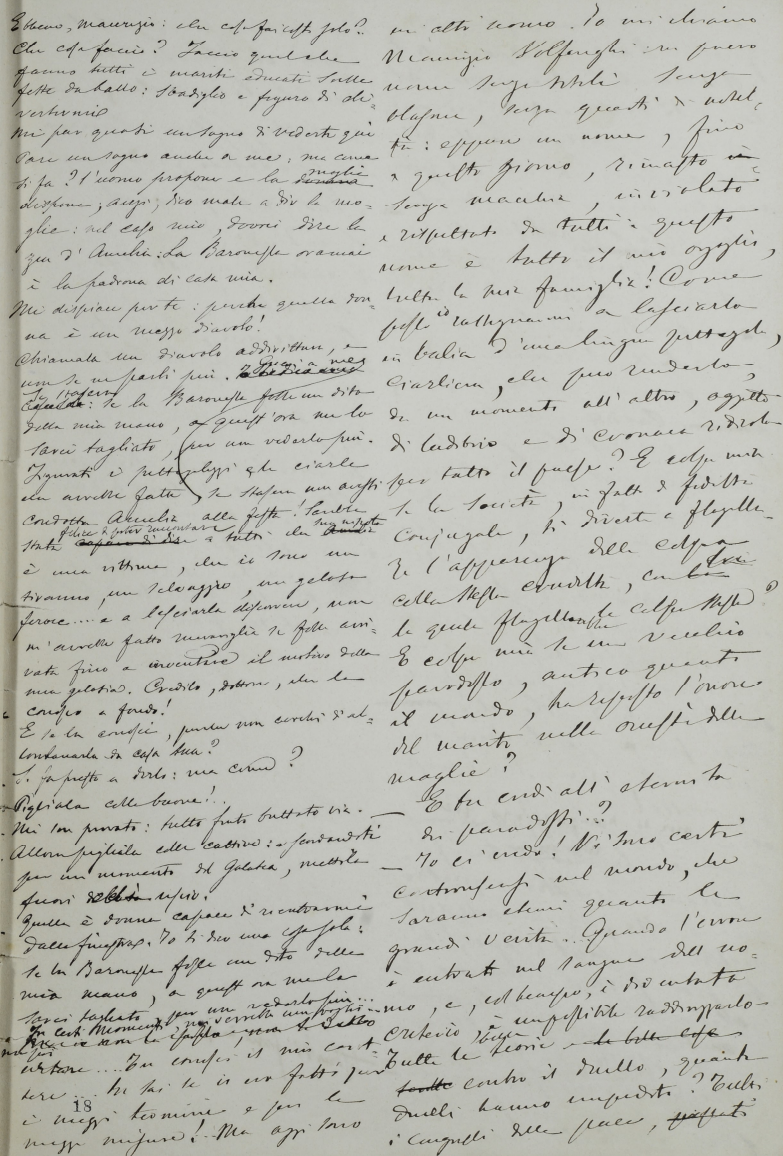 Ebbene, Maurizio: che cosa fai costì solo?
Che cosa faccio? Faccio quel che
fanno tutti i mariti educati sulle
feste da ballo: sbadiglio e figuro di di-
vertirmi
Mi par quasi un sogno di vederti qui
Pare un sogno anche a me: ma come
si fa? l'uomo propone e la donna moglie
dispone; anzi, dico male a dir la mo-
glie: nel caso mio, dovrei dire la
zia d'Amelia: La Baronessa oramai
è la padrona di casa mia.
Mi dispiace per te: perchè quella don-
na è un mezzo diavolo!
Chiamala un diavolo addirittura, e
non se ne parli più.
se la Baronessa fosse un dito
della mia mano, a quest'ora me lo
sarei tagliato, per non vederlo più.
Figurati i pettegolezzi e le ciarle
che avrebbe fatte, se stasera non avessi
condotta Amelia alla festa! Sarebbe
stata felice di poter raccontare a tutti che sua nipote
è una vittima, che io sono un
tiranno, un selvaggio, un geloso
feroce.... e a lasciarla discorrere, non
m'avrebbe fatto meraviglia se fosse arri-
vata fino a inventare il motivo della
mia gelosia. Credilo, dottore, che la
conosco a fondo!
E se la conosci, perchè non cerchi d'al-
lontanarla da casa tua?
Si fa presto a dirlo: ma come?
Pigliala colle buone!..
Mi son provato: tutto fiato buttato via.
Allora pigliala colle cattive: e scordandoti
per un momento del Galateo, mettila
fuori dell'uscio.
Quella è donna capace di rientrarmi
dalla finestra. Io ti dico una cosa sola:
se la Baronessa fosse un dito della
mia mano, a quest'ora me lo
sarei tagliato, per non vederlo più...
In certi momenti, ma vorrebbe una
.... Tu conosci il mio carat
tere.... tu sai se io ero fatto per
i mezzi termini e per le
mezze misure! Ma oggi sono
18
un altr'uomo. Io mi chiamo
Maurizio Volfenghi: un povero
nome senza titoli senza
blasone, senza quarti di nobil-
tà: eppure un nome, fino
a questo giorno, rimasto
senza macchia, inviolato
e rispettato da tutti: questo
nome è tutto il mio orgoglio,
tutta la mia famiglia! Come
posso io rassegnarmi a lasciarlo
in balia d'una lingua pettegola,
ciarliera, che può renderlo,
da un momento all'altro, oggetto
di ludibrio e di cronaca ridicola
per tutto il paese? È colpa mia
se la società, in fatto di fedeltà
conjugale, si diverte a flagellare
l'apparenza della colpa
colla stessa crudeltà, con cui
la gente flagella la colpa stessa?
È colpa mia se un vecchio
paradosso, antico quanto
il mondo, ha riposto l'onore
del marito nella onestà della
moglie?
— E tu credi all'eternità
dei paradossi?
— Io ci credo! Vi sono certi
controsensi nel mondo, che
saranno eterni quanto le
grandi verità.. Quando l'errore
è entrato nel sangue dell'uo-
mo, e, col tempo, è diventato
criterio, è impossibile raddrizzarlo
Tutte le teorie
contro il duello, quanti
duelli hanno impedito? Tutti
i Congressi della pace,